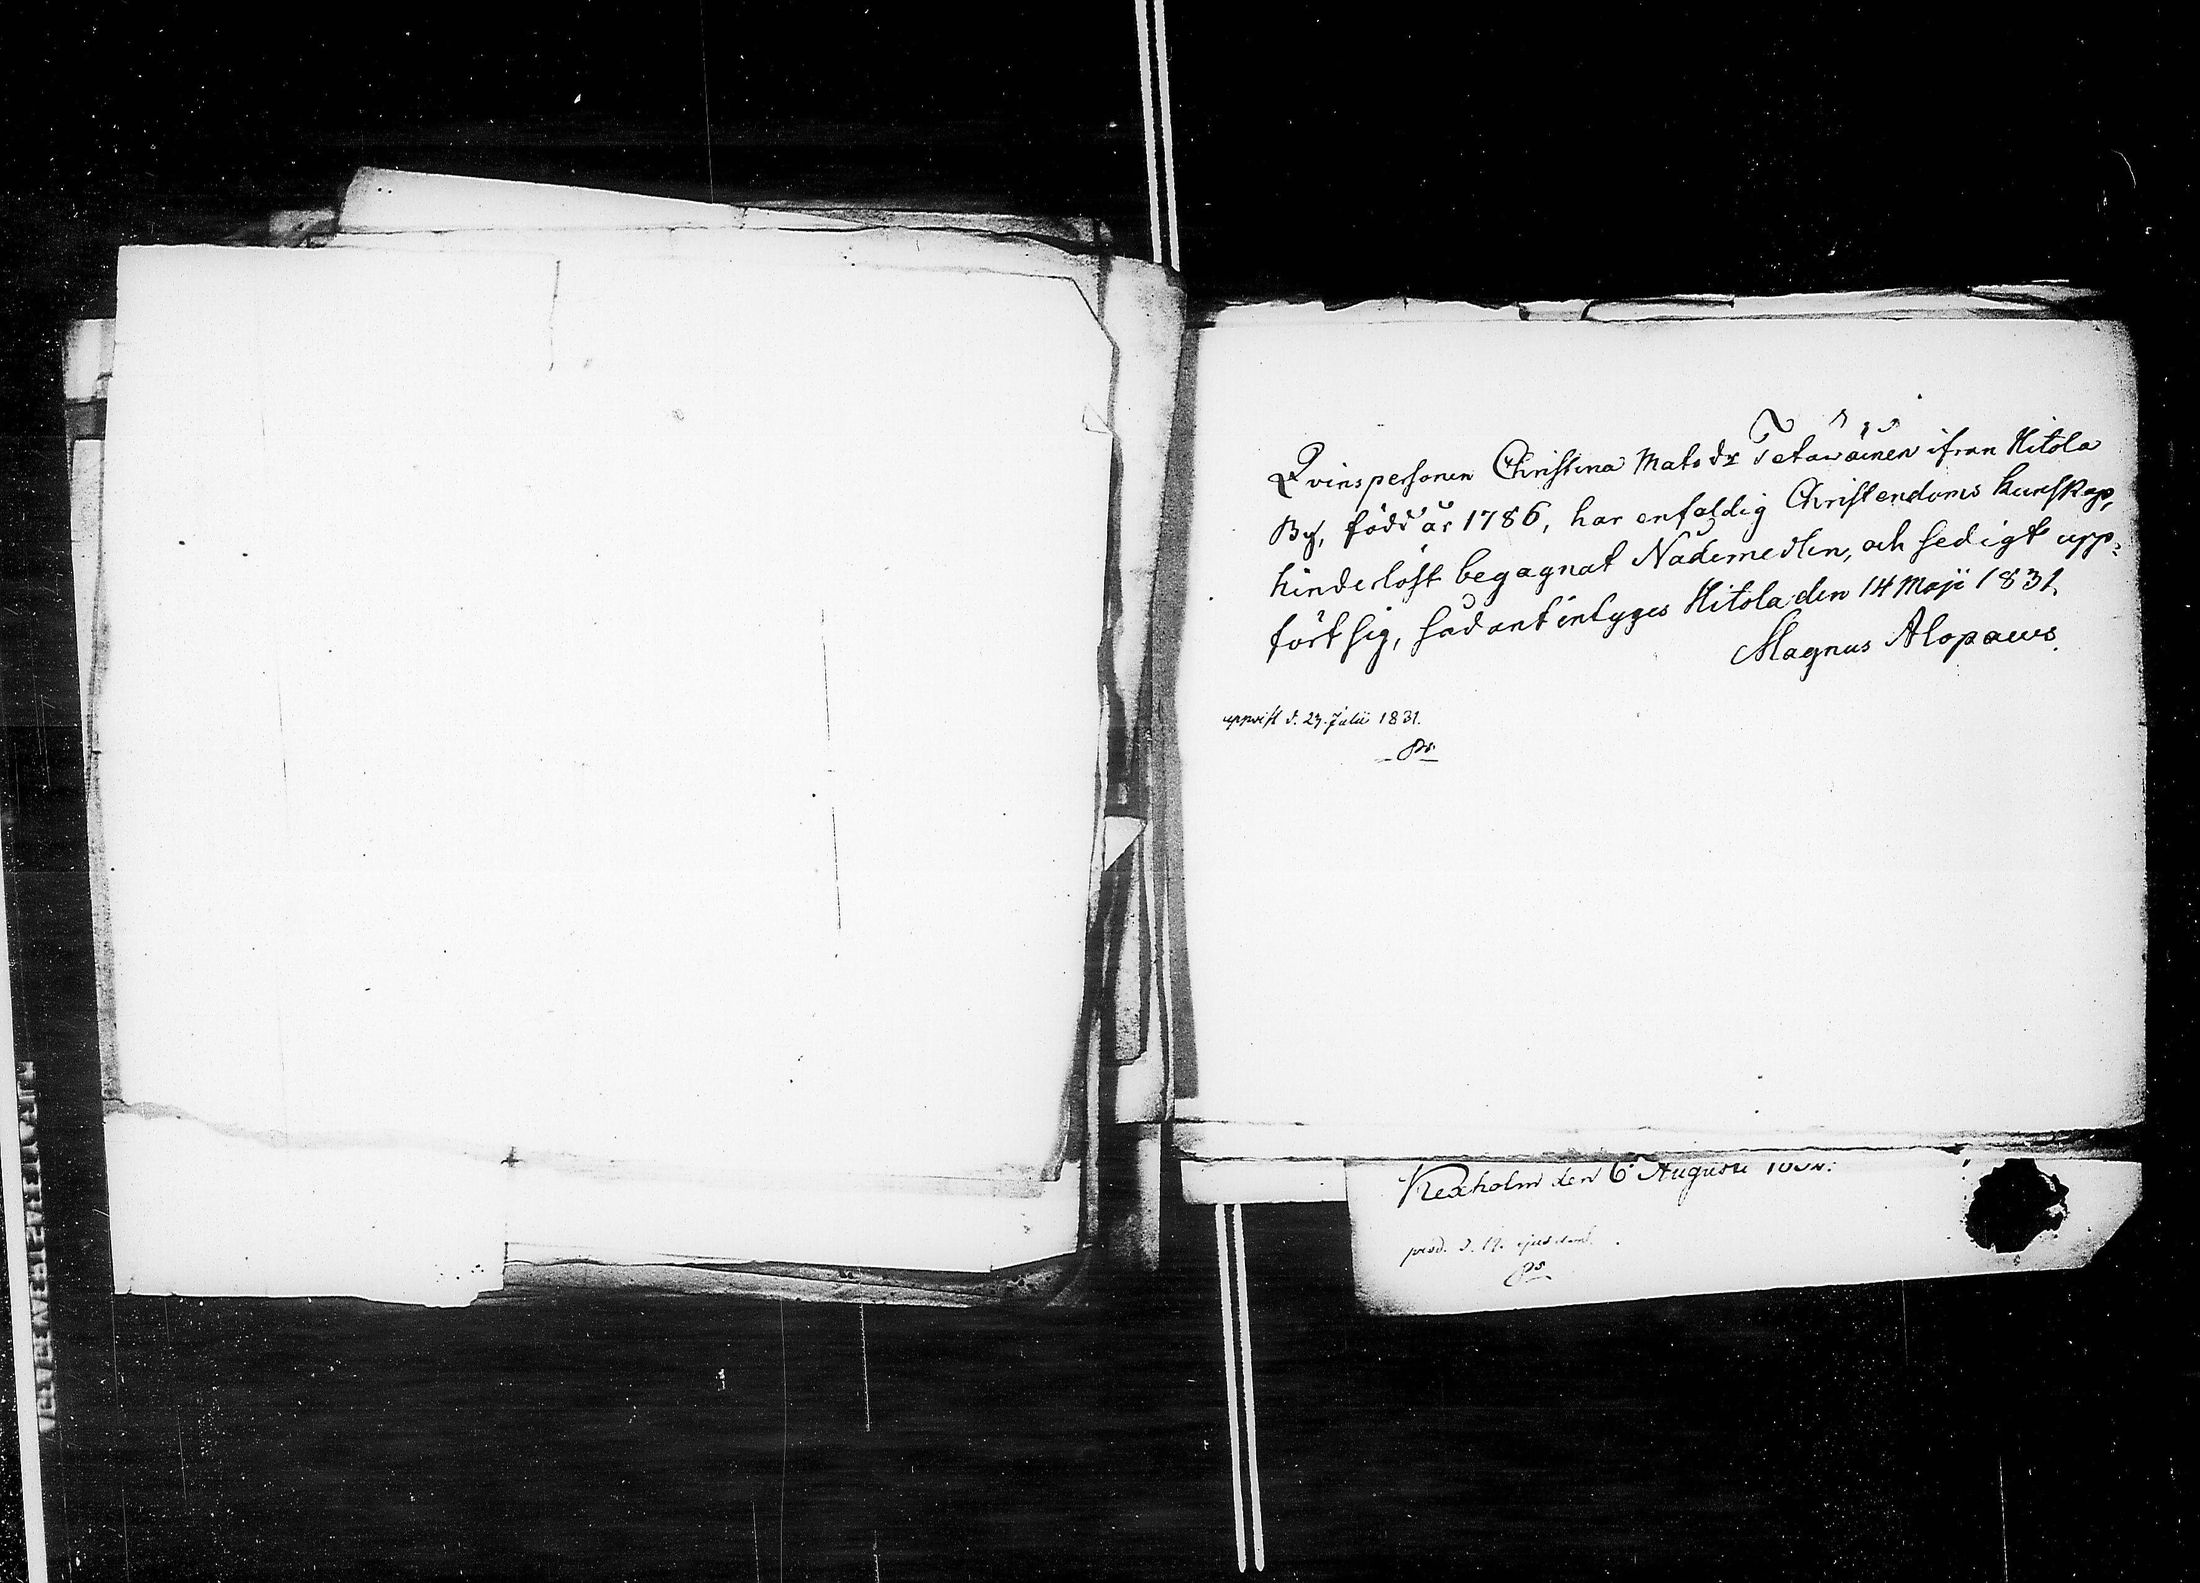 Qvinspersonen Christina Matsdr Tetäwäinen ifrån Hitola
By, född år 1786, har enfaldig Christendoms kunskap,
hinderlöst begagnat Nådemedlen, och sedigt upp-
fört sig, sådant intyges Hitola den 14 Maji 1831.
Magnus Alopaeus.
uppvist d. 23. Julii 1831.
Kexholm den 6 Augusti
prod. d. 17. ejusdem.